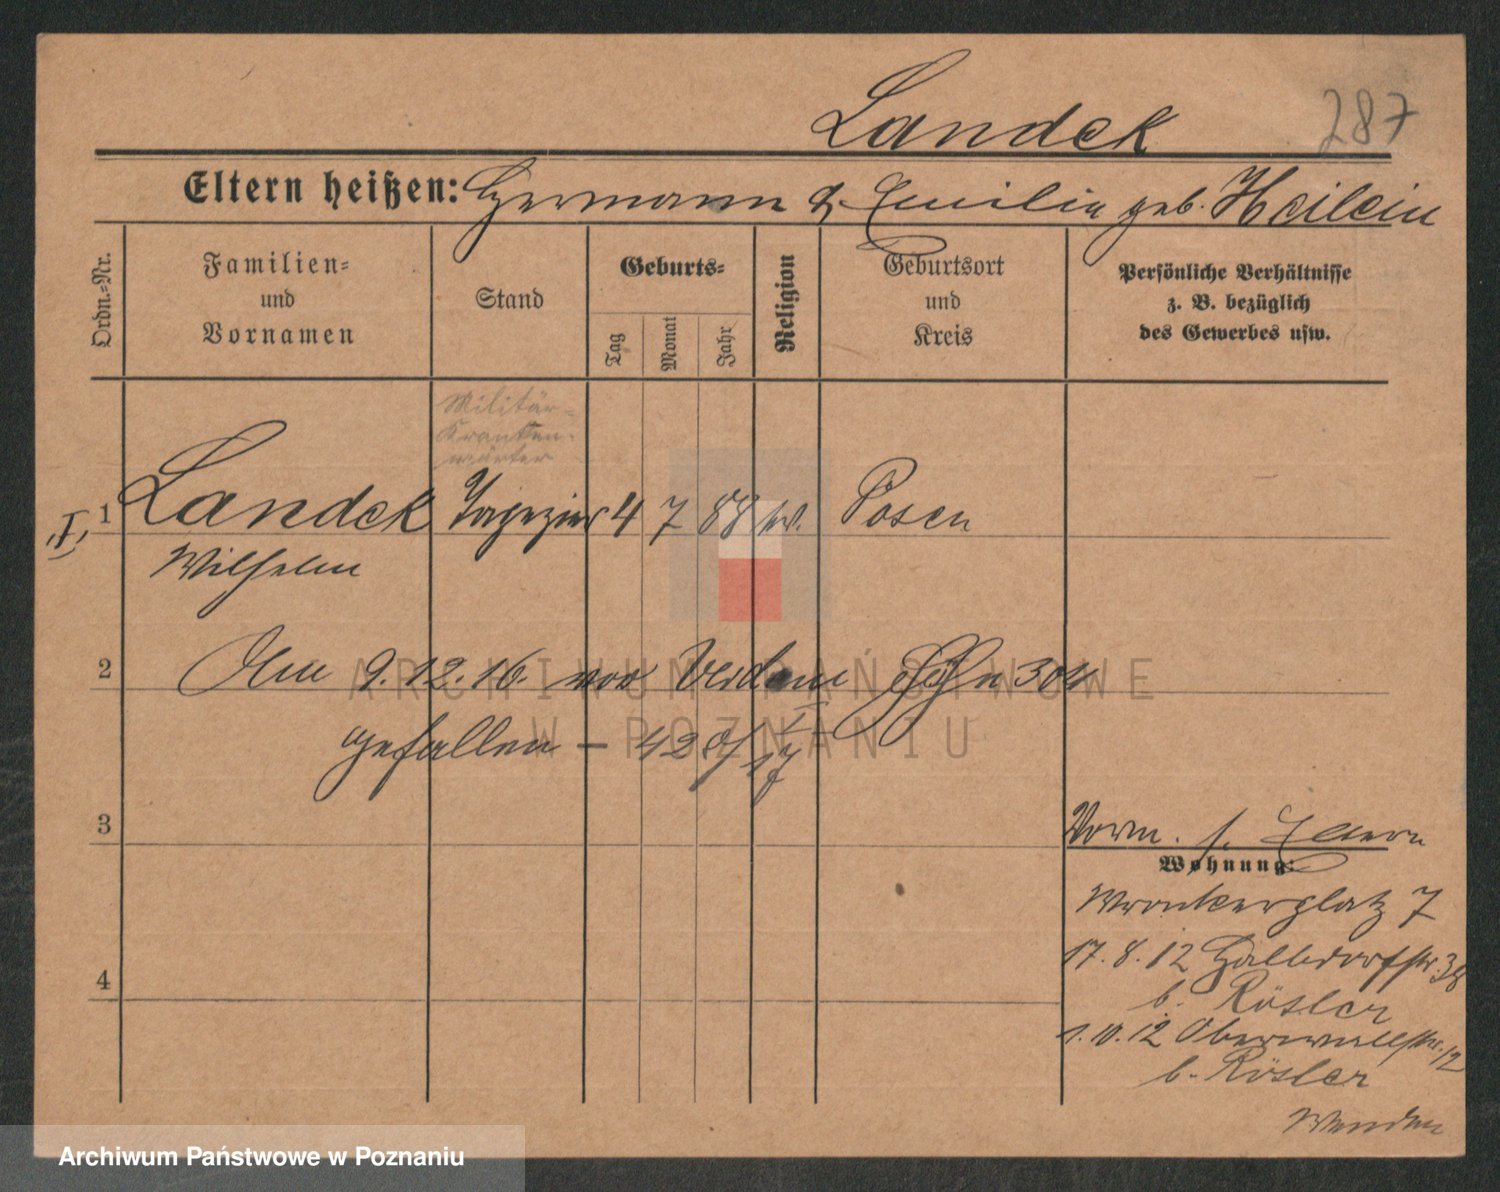 Landek
287
Eltern heißen: Hermann & Emilie geb. Heilein
Ordn.=Nr.
Familien=
und
Vornamen
Stand
Geburts=
Tag
Monat
Jahr
Religion
Geburtsort
und
Kreis
Persönliche Verhältnisse
z. B. bezüglich
des Gewerbes usw.
Militär-
Kranken-
wärter
"I" 1 Landek Tapezier 4 7 88 ev. Posen
Wilhelm
2 Am 9.12.16. vor Verdun Höhe 304
gefallen – 428/17
3
Vorm. s. Eltern
Wohnung:
Wronkerplatz 7
4
17.8.12 Halbdorfstr. 38
b. Rösler
1.10.12 Oberwallstr. 12
b. Rösler
Wenden
ARCHIWUM PAŃSTWOWE
W POZNANIU
Archiwum Państwowe w Poznaniu